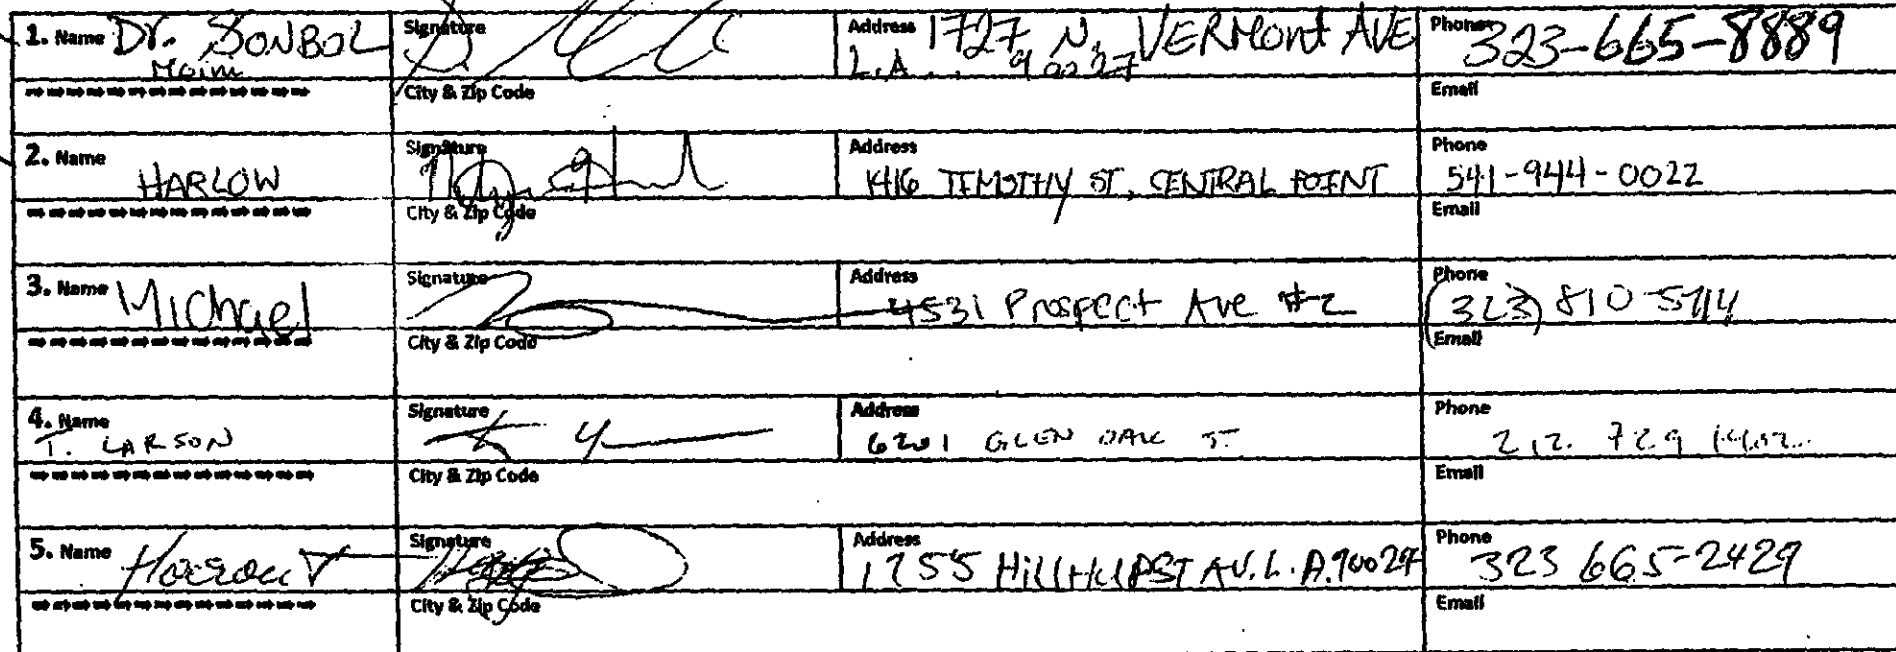 1. Name Dr. SONBOL Signature Address 1727 N. VERMONT AVE Phone 323-665-8889
Moim L.A. 90027
City & Zip Code Email
2. Name HARLOW Signature Address 1416 TIMOTHY ST, CENTRAL POINT Phone 541-944-0022
City & Zip Code Email
3. Name Michael Signature Address 4531 Prospect Ave #2 Phone (323) 810-5714
City & Zip Code Email
4. Name T. LARSON Signature Address 6201 GLEN OAK Phone 212. 729
City & Zip Code Email
5. Name Signature Address 1755 AV. L.A. 90027 Phone 323 665-2429
City & Zip Code Email